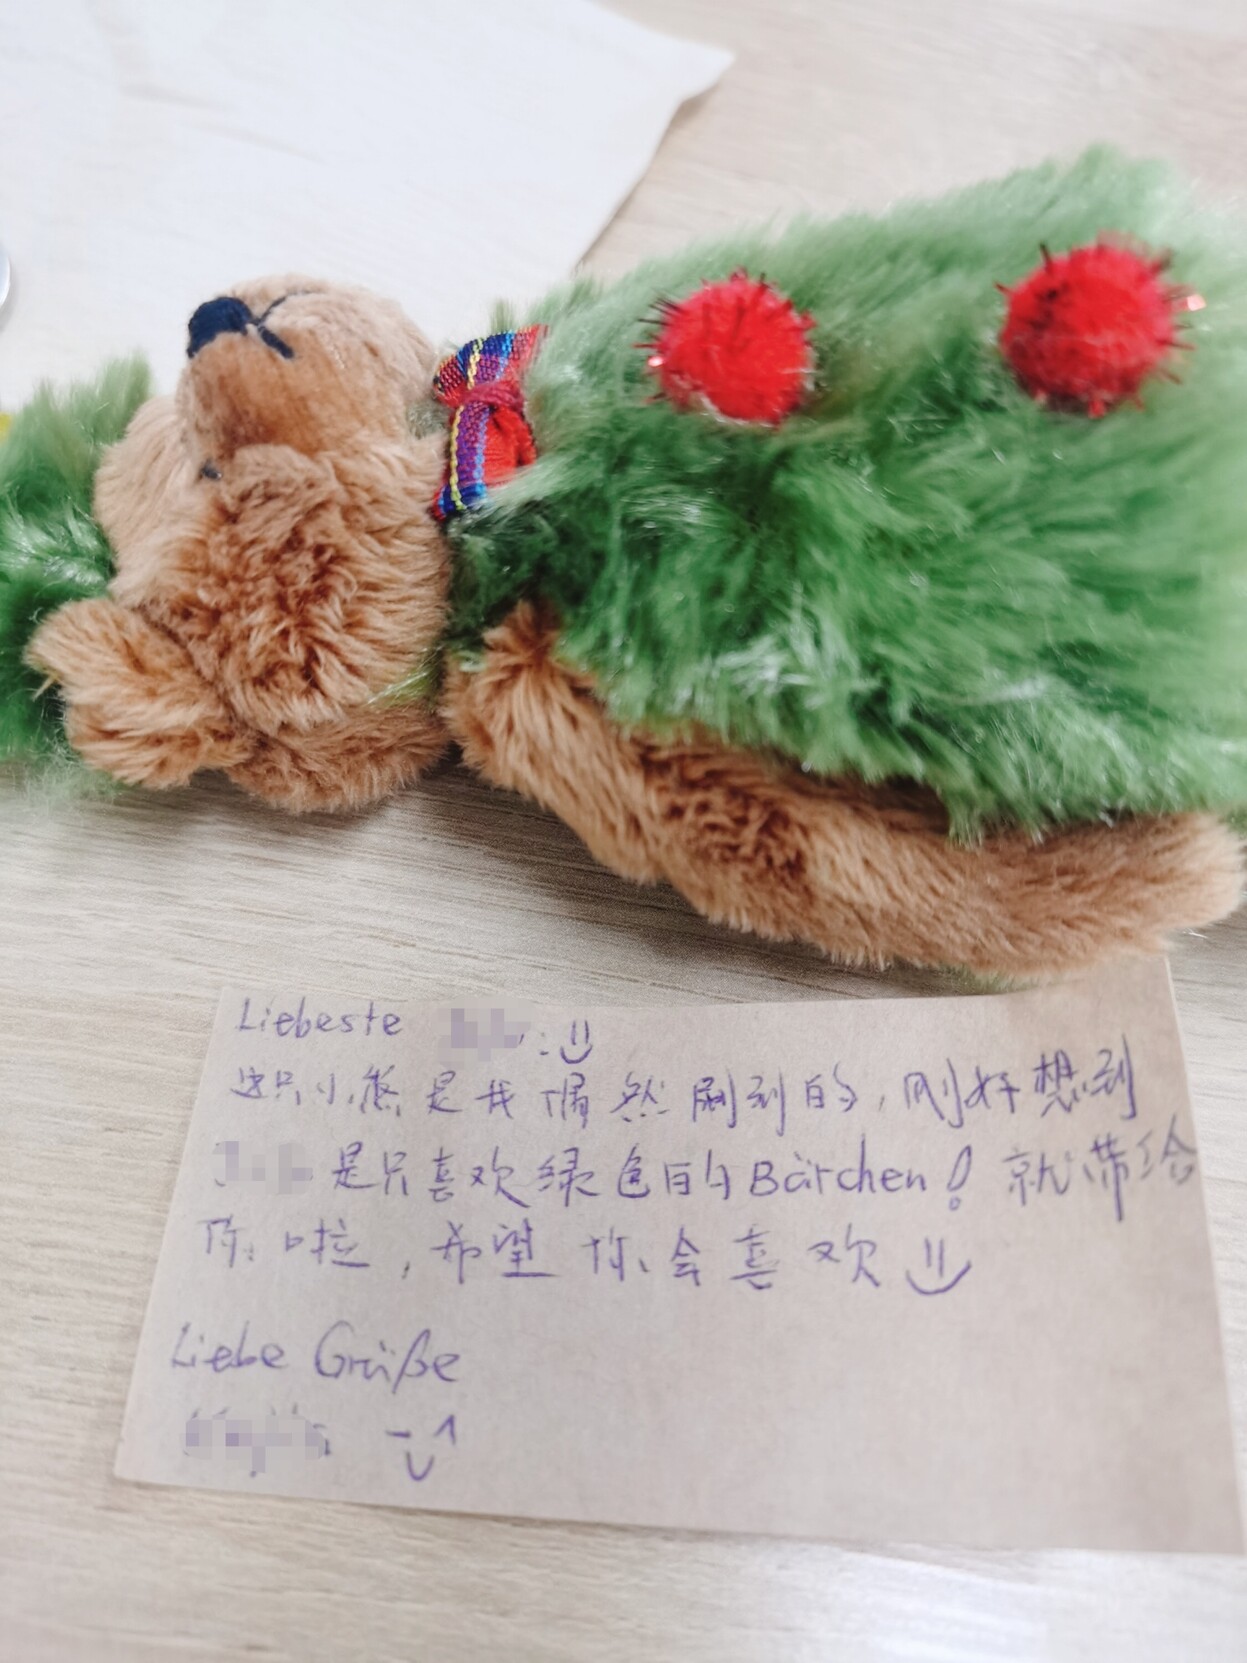 Liebeste :
这只小熊是我偶然刷到的,刚好想到
是只喜欢绿色的Bärchen!就带给
你啦,希望你会喜欢
Liebe Grüße